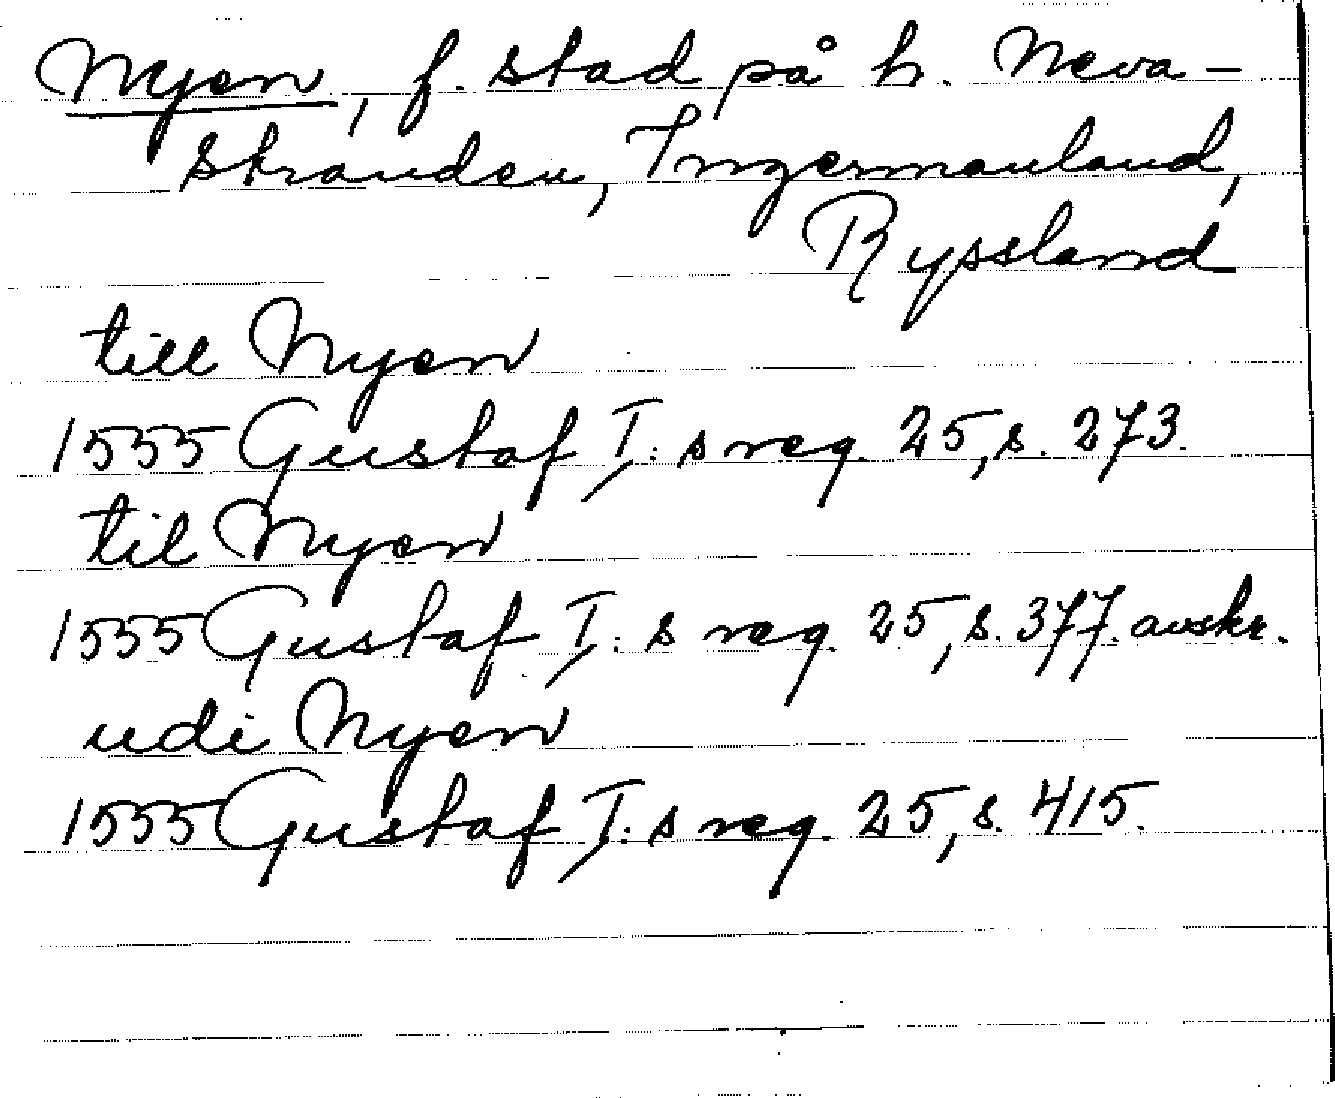 Nyen, f. stad på h. Neva-
stranden, Ingermanland,
Ryssland
till Nyen
1555 Gustaf I:s reg. 25, s. 273.
til Nyen
1555 Gustaf I:s reg. 25, s. 377. avskr.
udi Nyen
1555 Gustaf I:s reg. 25, s. 415.